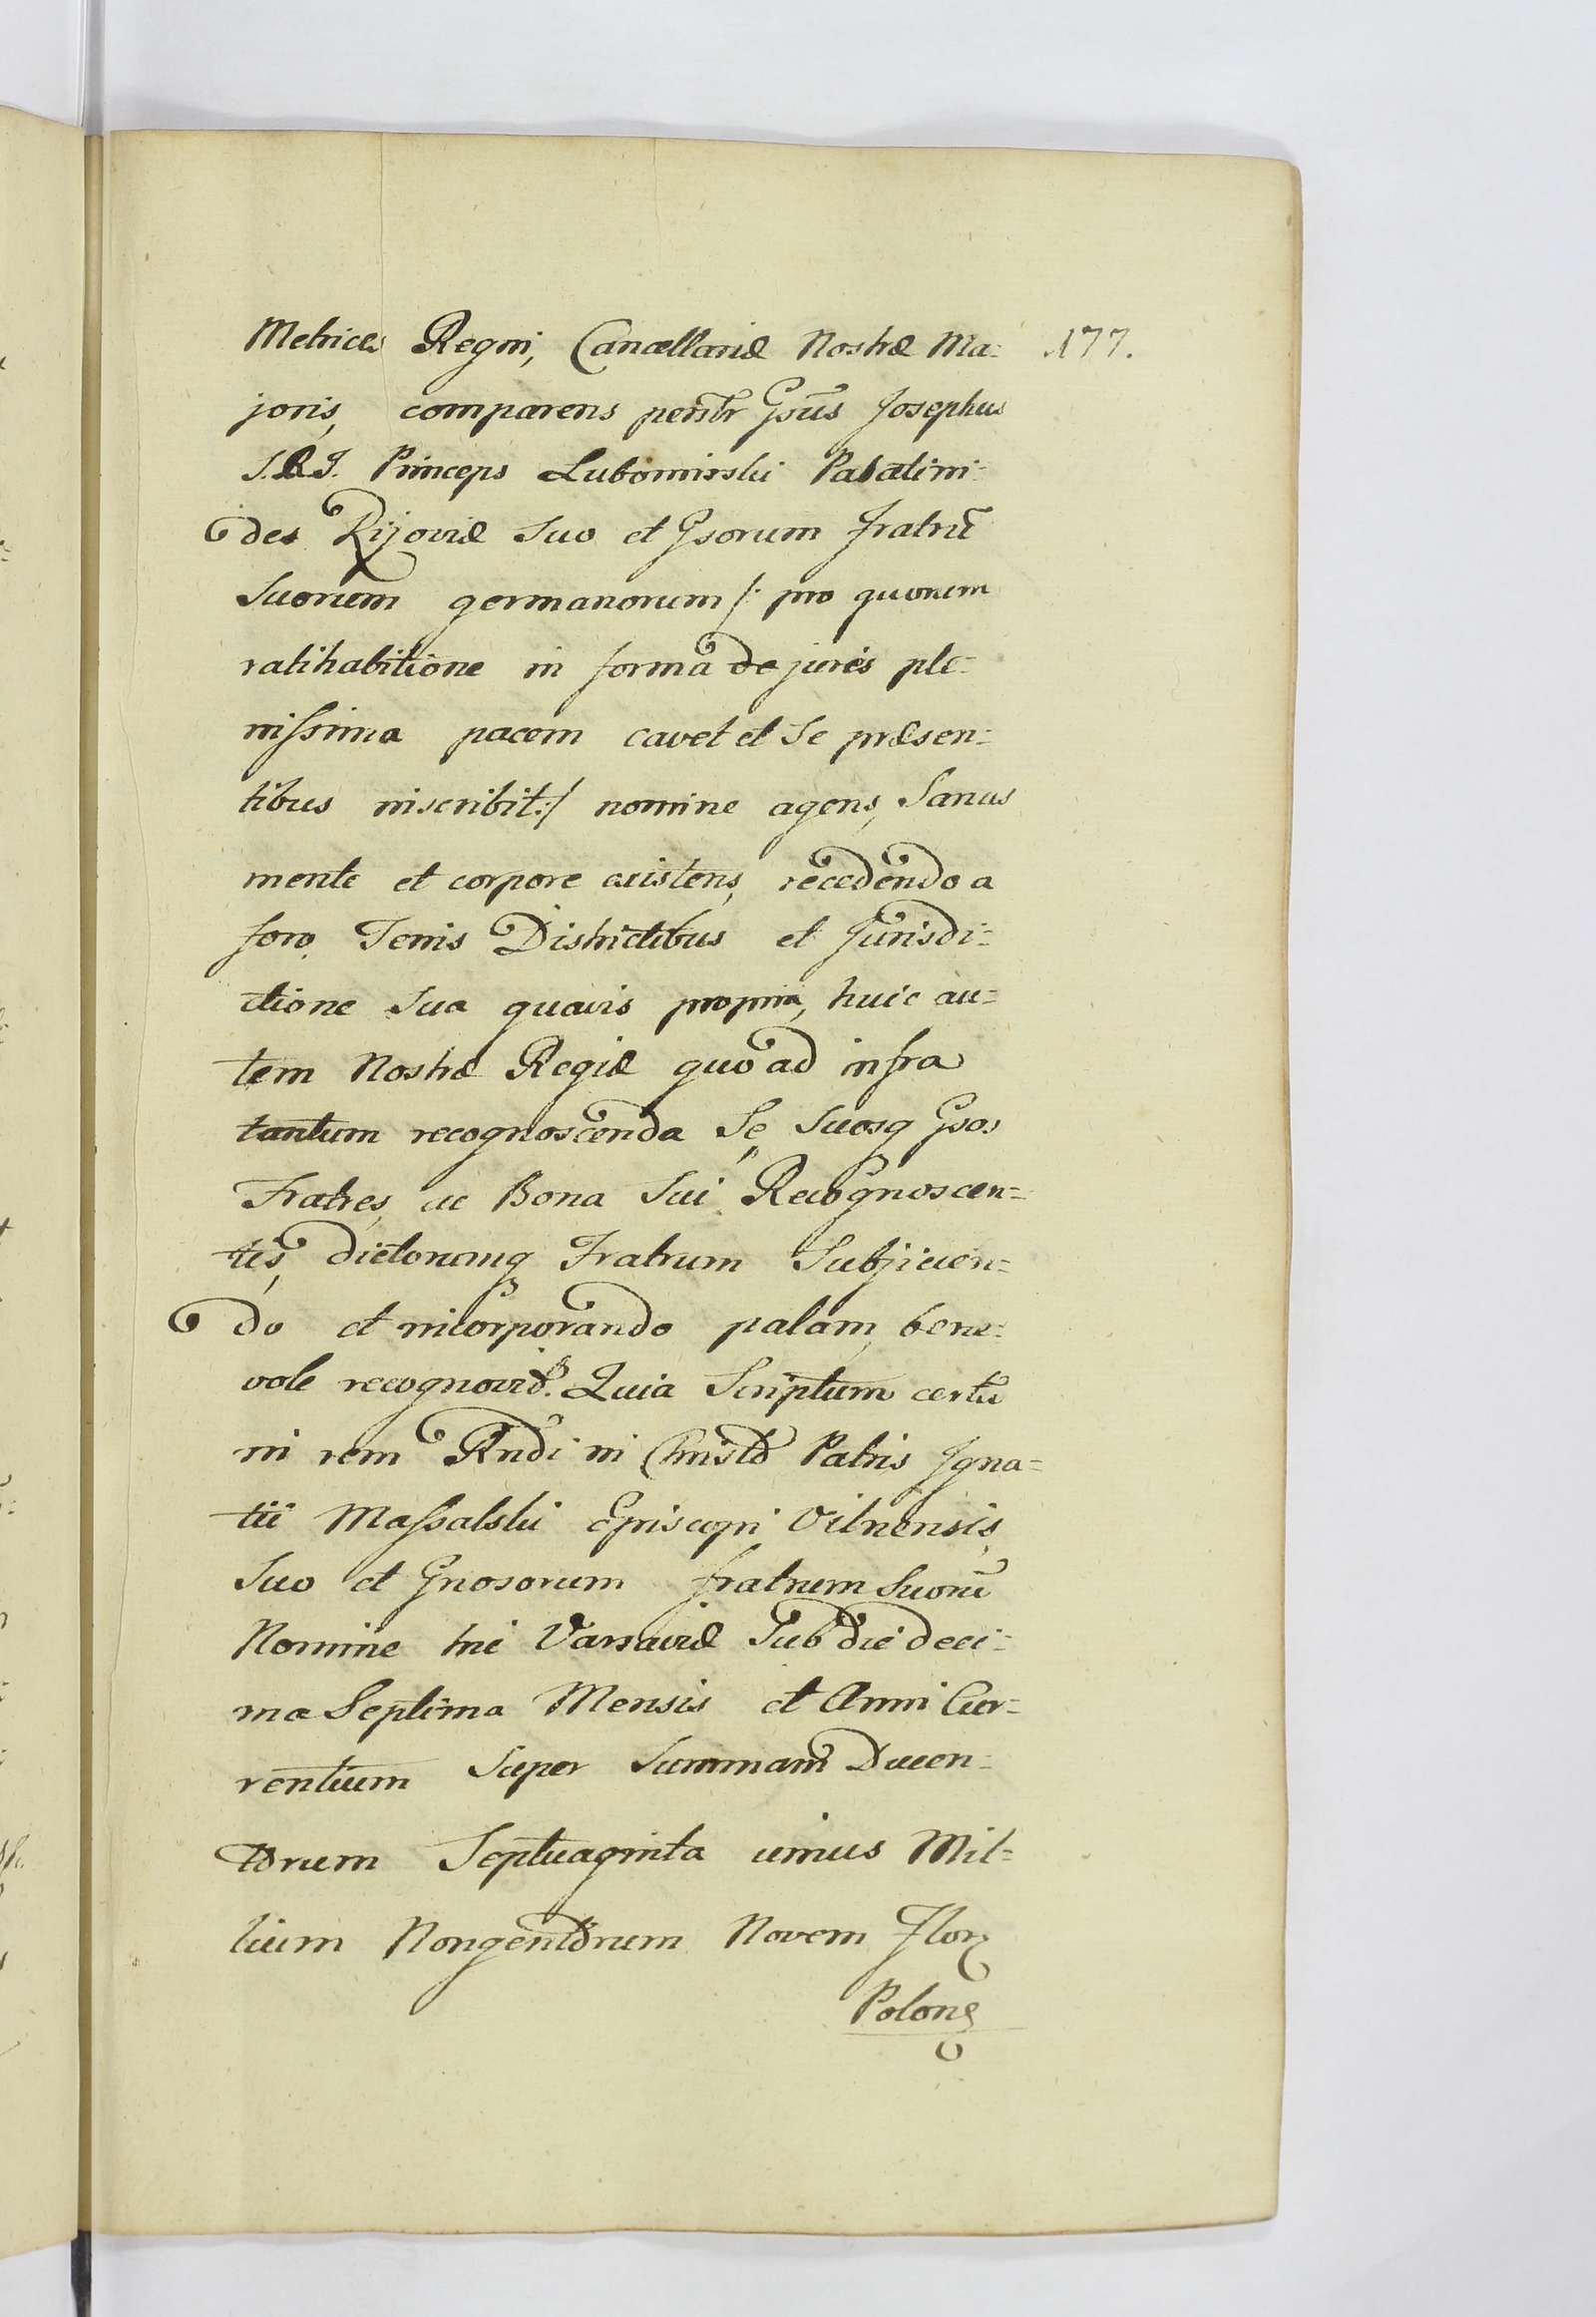 Metrices Regni, Cancellariæ Nostræ Ma= 177.
joris, comparens personlr Gsus Josephus
S.R.I. Princeps Lubomirski Palatini=
des Kijoviæ Suo et Gsorum Fratrū
Suorum germanorum /: pro quorum
ratihabitione in forma de juris ple=
nissima pacem cavet et Se præsen=
tibus inscribit :/ nomine agens, Sanus
mente et corpore existens, recedendo a
foro Terris Districtibus et Jurisdi=
ctione Sua quavis propria, huic au=
tem Nostræ Regiæ quo ad infra
tantum recognoscenda Se Suosq Gsos
Fratres, ac Bona Sui Recognoscen=
tis, dictorumq Fratrum Subjicien=
do et incorporando palam, bene=
vole recognovit. Quia Scriptum certū
in rem Rndi in Christo Patris Igna=
tii Massalski Episcopi Vilnensis,
Suo et Gnosorum fratrum Suorū
Nomine hic Varsaviæ Sub die deci=
ma Septima Mensis et Anni Cur=
rentium Super Summam Ducen=
torum Septuaginta unius Mil=
lium Nongentorum Novem Flor
Polon